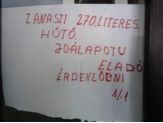 ZANASZI 270LITERES,
HŰTŐ.
JOÁLAPOTU
ELADÓ
ÉRDEKLŐDNI
1/1